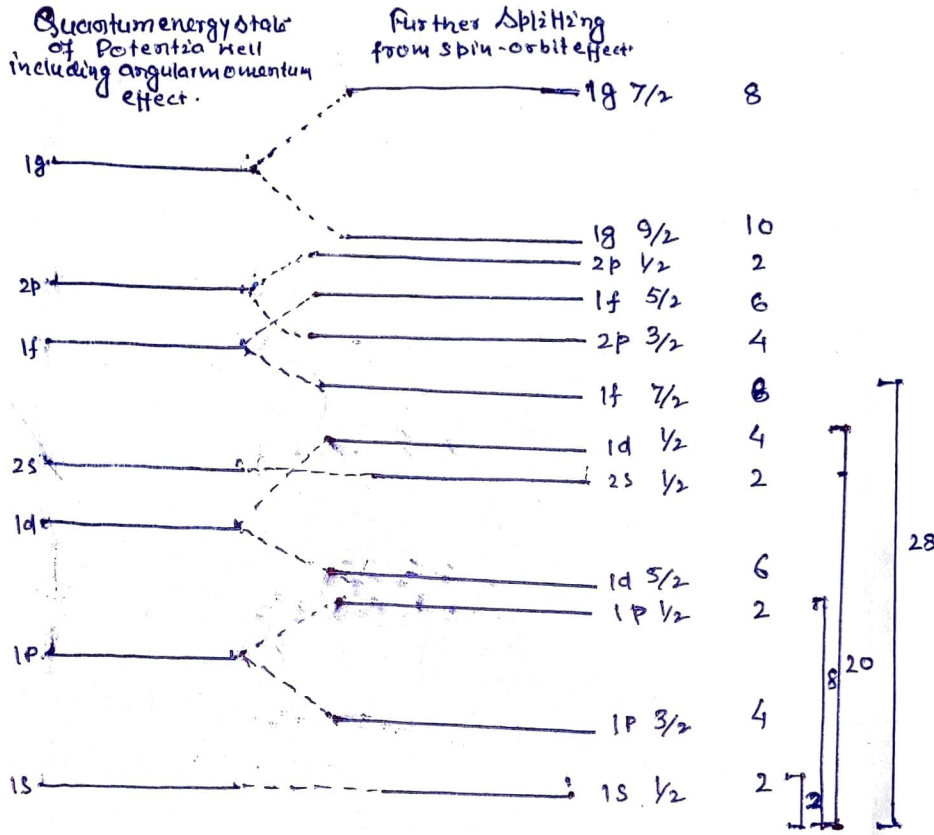 Quantum energy state
of Potentia well
including angular momentum
effect.
Further Splitting
from spin-orbit effect.
1g 7/2 8
1g
1g 9/2 10
2p 1/2 2
2p
1f 5/2 6
1f
2p 3/2 4
1f 7/2 8
1d 1/2 4
2s
2s 1/2 2
1d
28
1d 5/2 6
1p 1/2 2
1p
20
8
1p 3/2 4
1s
1s 1/2 2
2